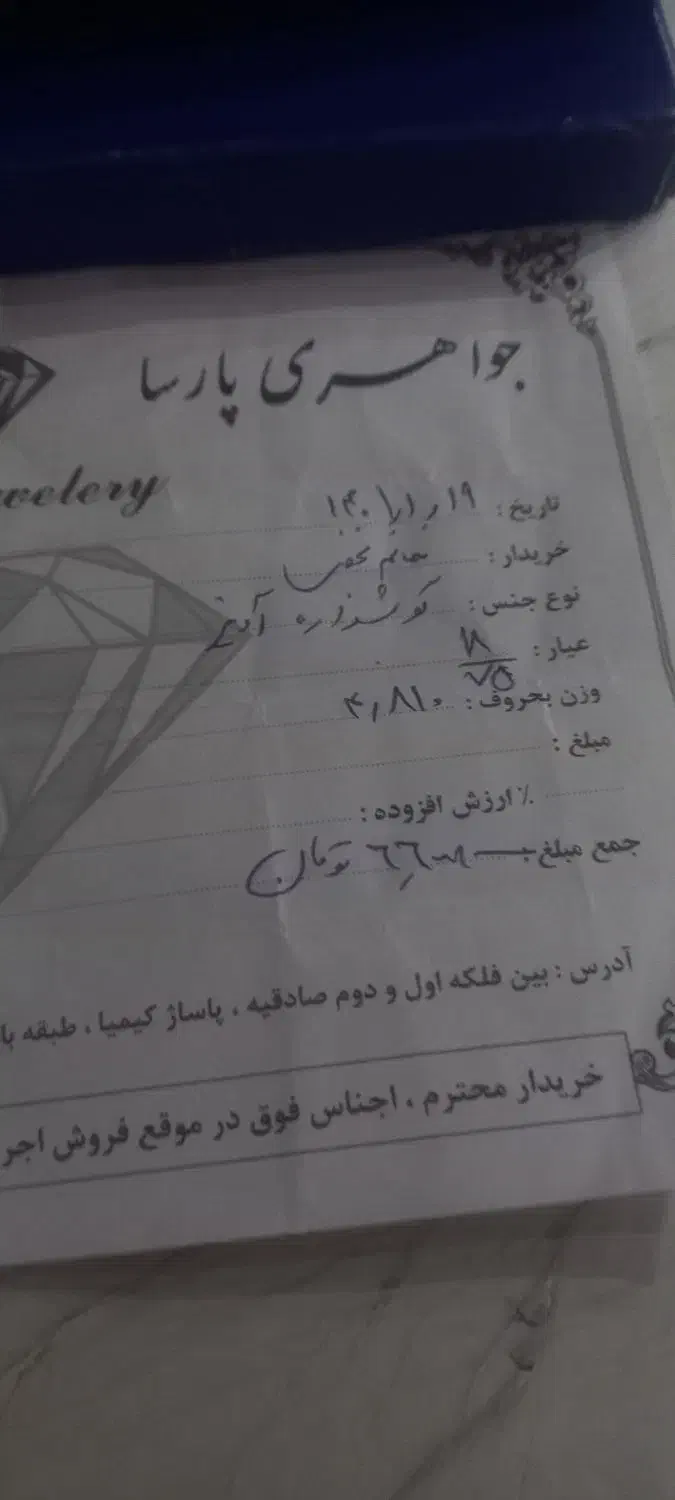 جواهری پارسا
welery
تاریخ :
خریدار : خانم
نوع جنس : گوشواره
عیار : ۱۸ / ۷۵۰
وزن بحروف : ۴,۸۱۰
مبلغ :
٪ ارزش افزوده :
جمع مبلغ : تومان
آدرس : بین فلکه اول و دوم صادقیه ، پاساژ کیمیا ، طبقه با
خریدار محترم ، اجناس فوق در موقع فروش اجر